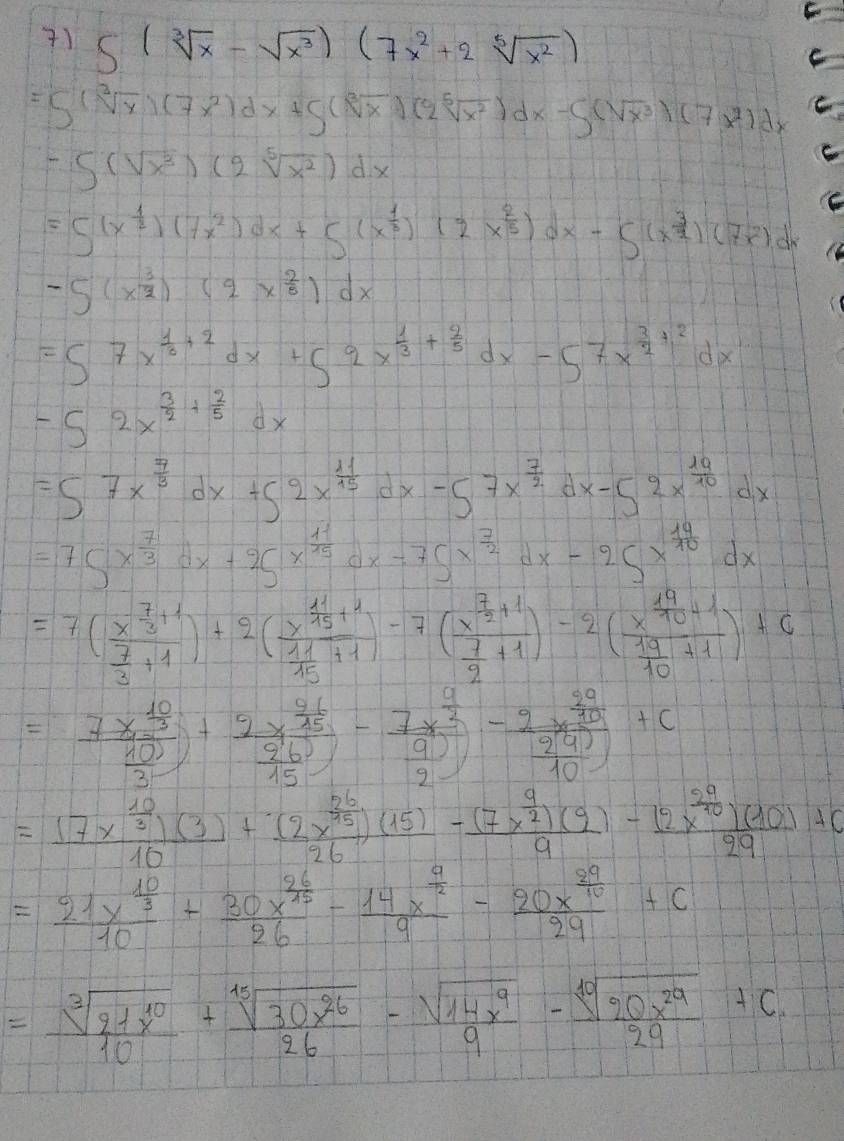 7) ∫ (∛x - √x³) (7x² + 2 ⁵√x²)
= ∫(∛x)(7x²)dx + ∫(∛x)(2 ⁵√x²)dx - ∫(√x³)(7x²)dx
- ∫(√x³)(2 ⁵√x²)dx
= ∫(x^(1/3))(7x²)dx + ∫(x^(1/3))(2x^(2/5))dx - ∫(x^(3/2))(7x²)dx
- ∫(x^(3/2))(2x^(2/5))dx
= ∫ 7x^(1/3 + 2) dx + ∫ 2x^(1/3 + 2/5) dx - ∫ 7x^(3/2 + 2) dx
- ∫ 2x^(3/2 + 2/5) dx
= ∫ 7x^(7/3) dx + ∫ 2x^(11/15) dx - ∫ 7x^(7/2) dx - ∫ 2x^(19/10) dx
= 7∫x^(7/3) dx + 2∫x^(11/15) dx - 7∫x^(7/2) dx - 2∫x^(19/10) dx
= 7(x^(7/3 + 1)/(7/3 + 1)) + 2(x^(11/15 + 1)/(11/15 + 1)) - 7(x^(7/2 + 1)/(7/2 + 1)) - 2(x^(19/10 + 1)/(19/10 + 1)) + C
= 7x^(10/3)/(10/3) + 2x^(26/15)/(26/15) - 7x^(9/2)/(9/2) - 2x^(29/10)/(29/10) + C
= (7x^(10/3))(3)/10 + (2x^(26/15))(15)/26 - (7x^(9/2))(2)/9 - (2x^(29/10))(10)/29 + C
= 21x^(10/3)/10 + 30x^(26/15)/26 - 14x^(9/2)/9 - 20x^(29/10)/29 + C
= ∛(21x¹⁰)/10 + ¹⁵√(30x²⁶)/26 - √(14x⁹)/9 - ¹⁰√(20x²⁹)/29 + C.